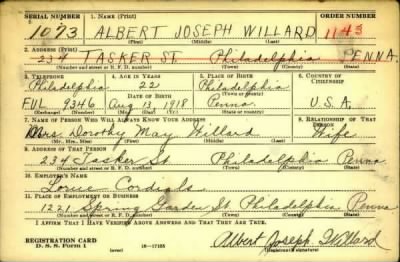 SERIAL NUMBER 1. NAME (Print) ORDER NUMBER
1073 ALBERT JOSEPH WILLARD 1143
(First) (Middle) (Last)
2. ADDRESS (Print)
234 TASKER ST. Philadelphia PENNA.
(Number and street or R. F. D. number) (Town) (County) (State)
3. TELEPHONE 4. AGE IN YEARS 5. PLACE OF BIRTH 6. COUNTRY OF CITIZENSHIP
Philadelphia 22 Philadelphia
DATE OF BIRTH
FUL 9346 Aug 13 1918 Penna. U.S.A.
(Exchange) (Number) (Mo.) (Day) (Yr.) (State or country)
7. NAME OF PERSON WHO WILL ALWAYS KNOW YOUR ADDRESS 8. RELATIONSHIP OF THAT PERSON
Mrs. Dorothy May Willard Wife
(Mr., Mrs., Miss) (First) (Middle) (Last)
9. ADDRESS OF THAT PERSON
234 Tasker St. Philadelphia Penna
(Number and street or R. F. D. number) (Town) (County) (State)
10. EMPLOYER'S NAME
Cordials
11. PLACE OF EMPLOYMENT OR BUSINESS
1221 Spring Garden St Philadelphia Penna
(Number and street or R. F. D. number) (Town) (County) (State)
I AFFIRM THAT I HAVE VERIFIED ABOVE ANSWERS AND THAT THEY ARE TRUE.
REGISTRATION CARD
D. S. S. Form 1 (over) 16—17105
Albert Joseph Willard
(Registrant's signature)